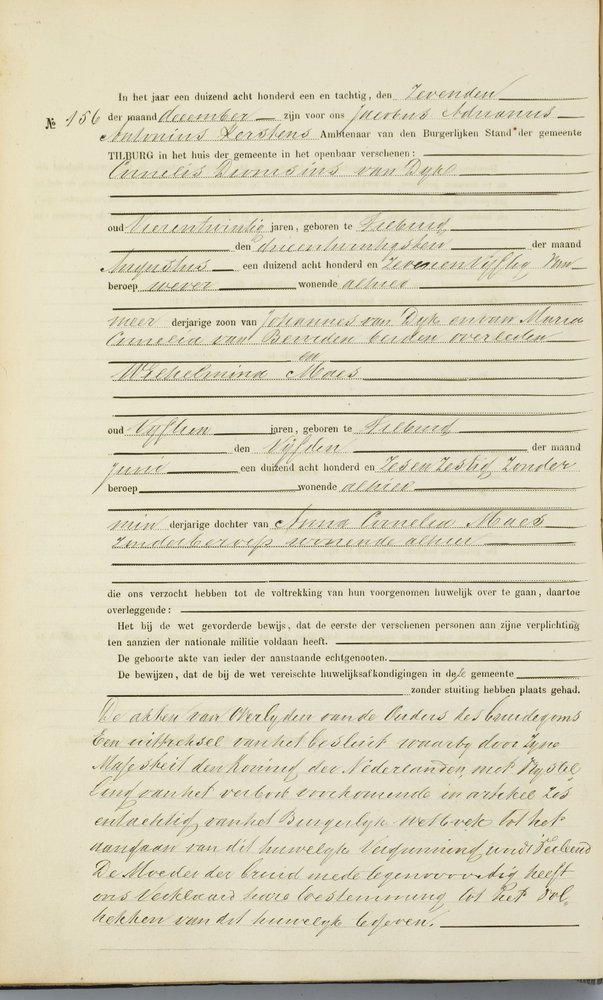 In het jaar een duizend acht honderd een en tachtig, den Zevenden
№ 156 der maand december zijn voor ons Jacobus Adrianus
Antonius Kerstens Ambtenaar van den Burgerlijken Stand der gemeente
TILBURG in het huis der gemeente in het openbaar verschenen:
Cornelis Dionisius van Dyk
oud Vierentwintig jaren, geboren te Tilburg
den drieentwintigsten der maand
Augustus een duizend acht honderd en Zevenenvijftig Van
beroep wever wonende alhier
meer derjarige zoon van Johannes van Dyk en van Maria
Cornelia van Beurden beiden overleden
en
Wilhelmina Maes
oud Vijftien jaren, geboren te Tilburg
den Vijfden der maand
Juni een duizend acht honderd en Zesenzestig Zonder
beroep wonende alhier
min derjarige dochter van Anna Cornelia Maes
Zonder beroep wonende alhier
die ons verzocht hebben tot de voltrekking van hun voorgenomen huwelijk over te gaan, daartoe
overleggende:
Het bij de wet gevorderde bewijs, dat de eerste der verschenen personen aan zijne verplichting
ten aanzien der nationale militie voldaan heeft.
De geboorte akte van ieder der aanstaande echtgenooten.
De bewijzen, dat de bij de wet vereischte huwelijksafkondigingen in deze gemeente
zonder stuiting hebben plaats gehad.
De akten van Overlyden van de Ouders des bruidegoms
Een uittreksel van het besluit waarby door Zyne
Majesteit den Koning der Nederlanden met Vrystel
ling van het verbod voorkomende in artikel Zes
entachtig van het Burgerlyk wetboek tot het
aangaan van dit huwelyk Vergunning wordt Verleend
De Moeder der bruid mede tegenwoordig heeft
ons Verklaard hare toestemming tot het Vol
trekken van dit huwelyk te geven.